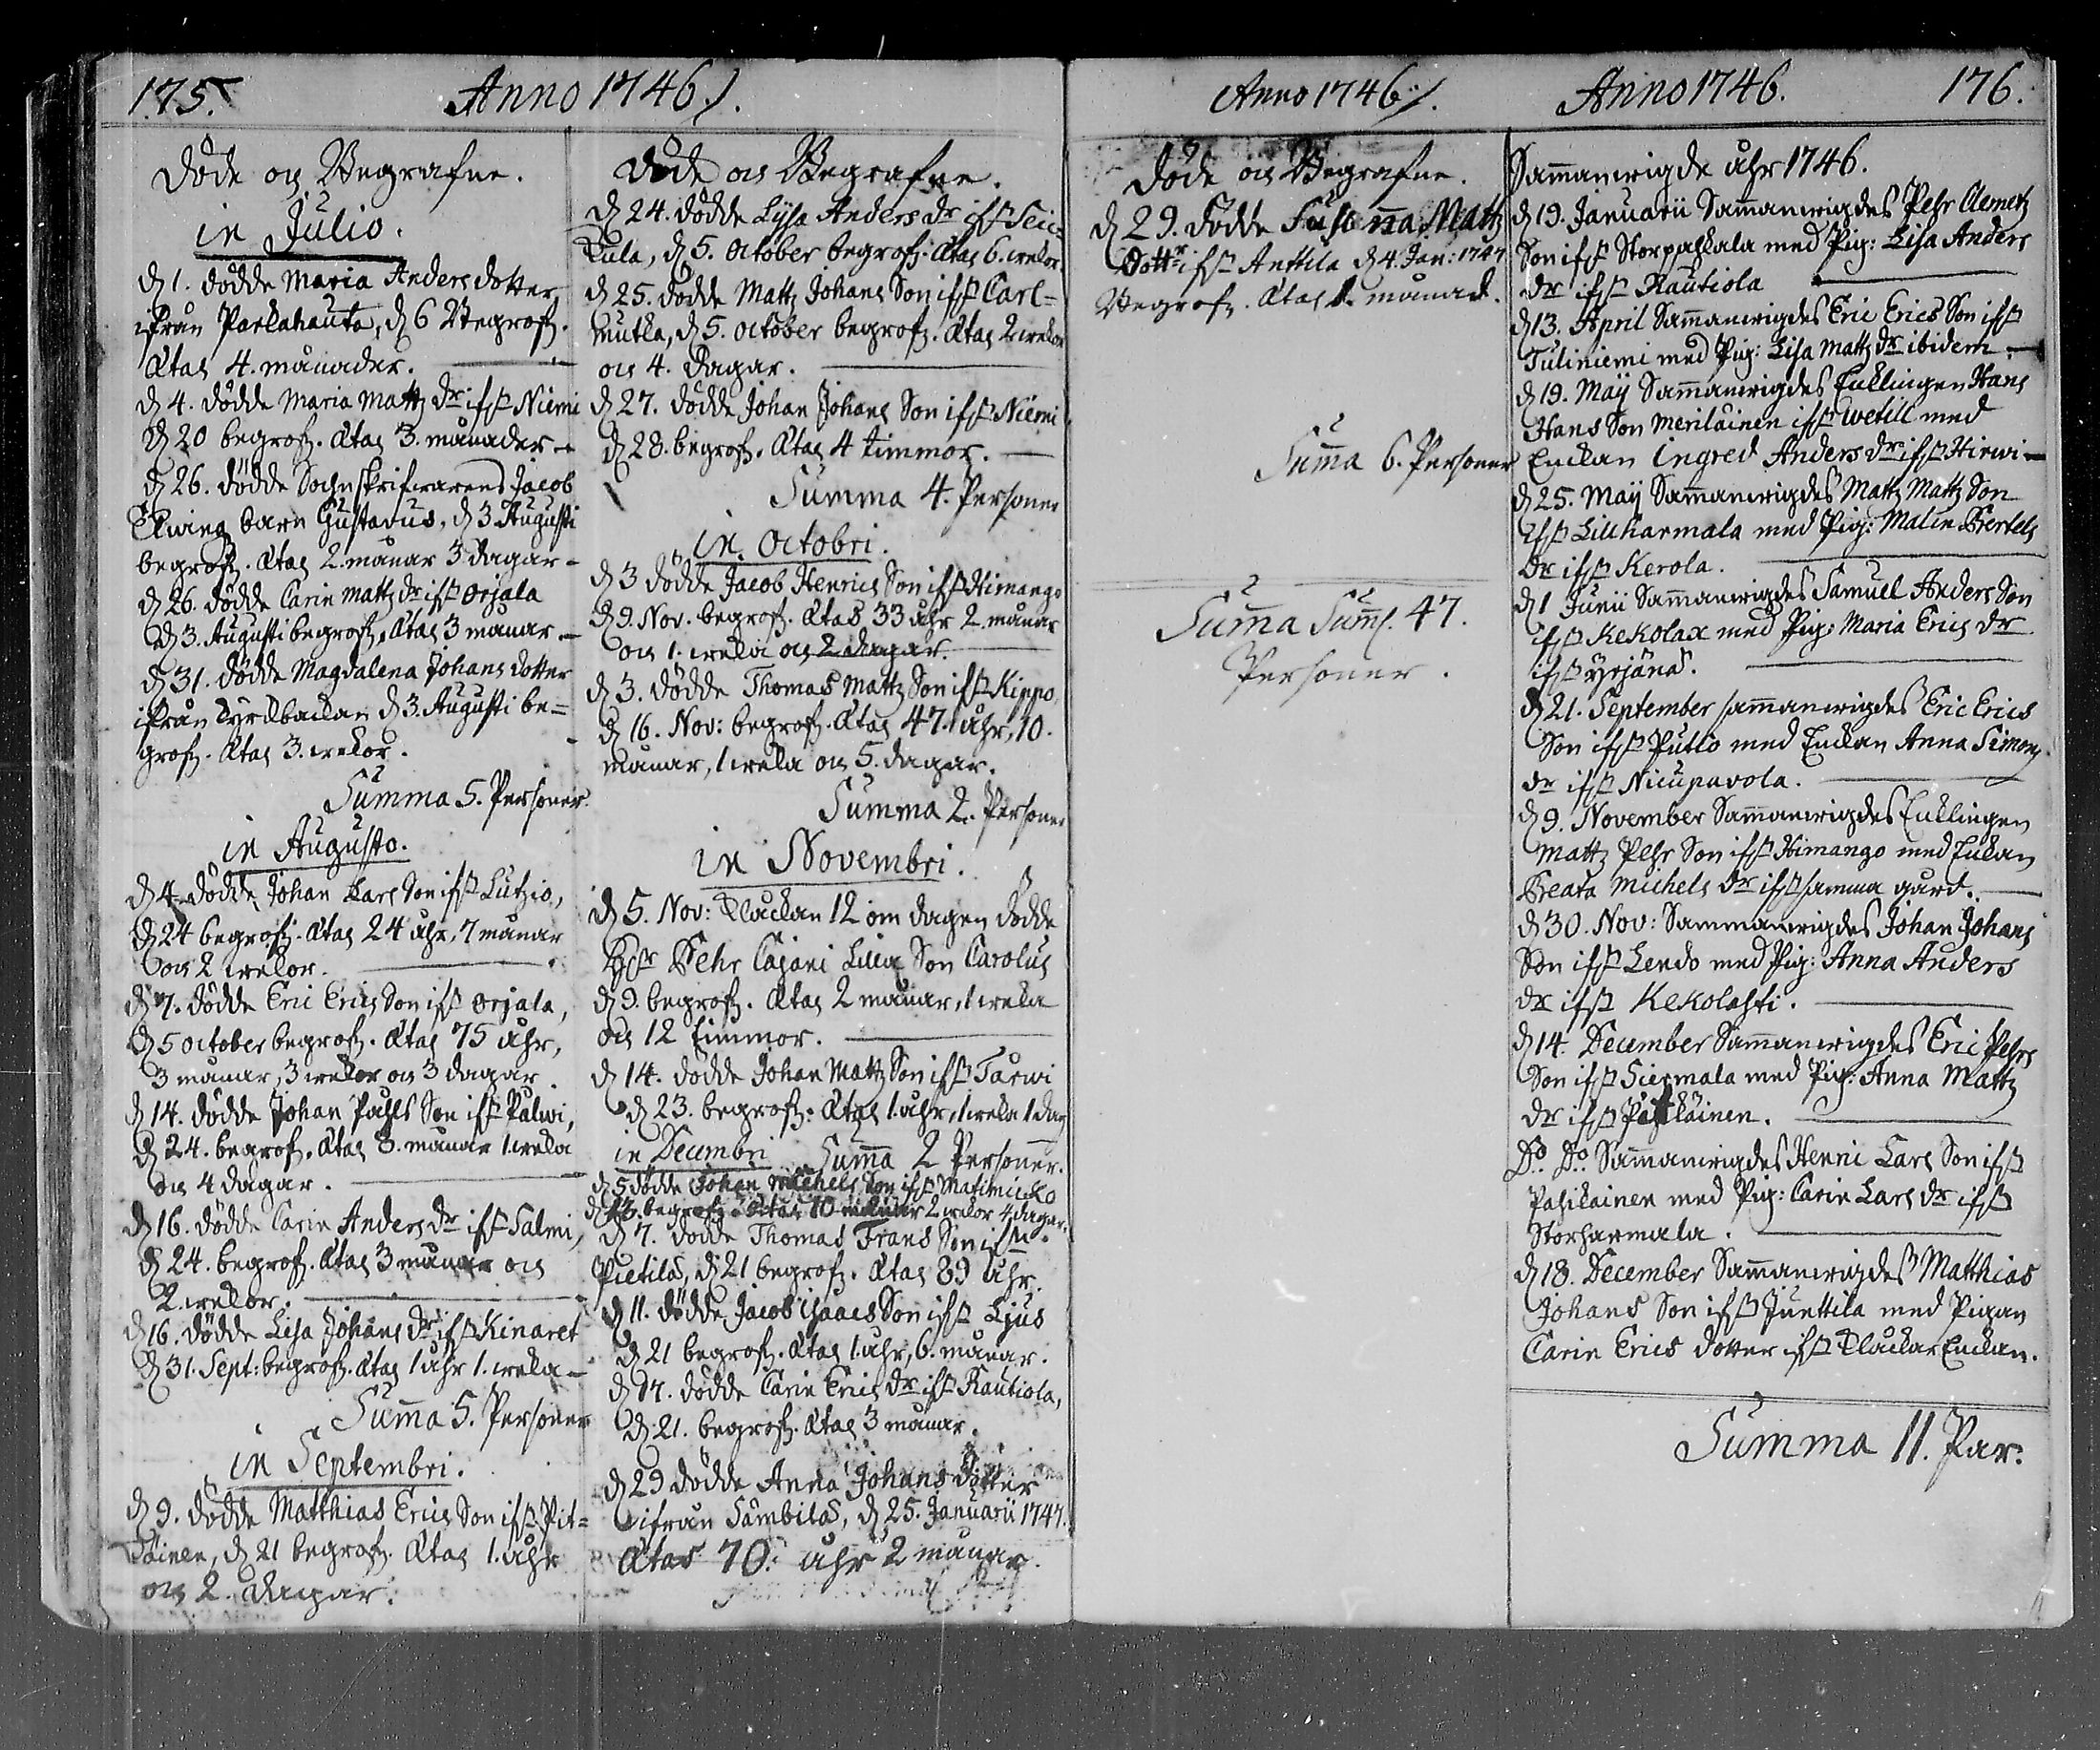 175.
Anno 1746 /.
Döde och Begrafne.
in Julio.
d 1. dödde Maria Anders dotter
ifrån Parkahauta, d 6 Begrofz.
Ætas 4. månader.
d 4. dödde Maria Mattz dr ifr Niemi
d 20 begrofz. Ætas 3. månader
d 26. dödde Sochnskrifwarens Jacob
barn Gustavus, d 3 Augusti
begrofz. Ætas 2. månar 3 dagar
d 26. dödde Carin Mattz dr ifr Orjala
d 3. Augusti begrofz. Ætas 3 månar
d 31. dödde Magdalena Johans dotter
ifrån Kyrckbackan d 3. Augusti be=
grofz. Ætas 3. wekor.
Summa 5. Personer.
in Augusto.
d 4. dödde Johan Lars Son ifr
d 24 begrofz. Ætas 24 åhr, 7 månar
och 2 wekor.
d 7. dödde Eric Erics Son ifr Orjala,
d 5 october begrofz. Ætas 75 åhr,
3 månar, 3 wekor och 3 dagar.
d 14. dödde Johan Påhls Son ifr Palwi,
d 24. begrofz. Ætas 8. månar 1. weka
och 4 dagar.
d 16. dödde Carin Anders dr ifr Salmi,
d 24. begrofz. Ætas 3 månar och
2. wekor.
d 16. dödde Lisa Johans dr ifr Kinaret
d 31. Sept: begrofz. Ætas 1 åhr 1. weka
Suma 5. Personer
in Septembri.
d 9. dödde Matthias Erics Son ifr Pit=
käinen, d 21 begrofz. Ætas 1. åhr
och 2. dagar.
Döde och Begrafne.
d 24. dödde Lisa Anders dr ifr Sei=
kula, d 5. October begrofz. Ætas 6. wekor
d 25. dödde Mattz Johans Son ifr Carl=
mutka, d 5. october begrofz. Ætas 2 wekor
och 4. dagar.
d 27. dödde Johan Johans Son ifr Niemi
d 28. begrofz. Ætas 4 timmor.
Summa 4. Personer
in Octobri.
d 3 dödde Jacob Henrics Son ifr Himango
d 9. Nov. begrofz. Ætas 33 åhr 2. månar
och 1. weka och 2 dagar.
d 3. dödde Thomas Mattz Son ifr Kippo,
d 16. Nov: begrofz. Ætas 47. åhr, 10.
månar, 1 weka och 5. dagar.
Summa 2. Personer
in Novembri.
d 5. Nov: Klockan 12 om dagen dödde
Pehr Cajani Son Carolus
d 9. begrofz. Ætas 2 månar, 1 weka
och 12 timmor.
d 14. dödde Johan Mattz Son ifr Tarwi
d 23. begrofz. Ætas 1. åhr, 1 weka 1 dag
in Decembri Suma 2 Personer.
d 5 dödde Johan Michels Son ifr
d 13. begrofz. Ætas 10 månar 2 wekor 4 dagar.
d 7. dödde Thomas Frans Son ifr
Pietilä, d 21 begrofz. Ætas 89 åhr.
d 11. dödde Jacob Isaacs Son ifr Ljus
d 21 begrofz. Ætas 1. åhr, 6. månar.
d 17. dödde Carin Erics dr ifr Rautiola,
d 21. begrofz. Ætas 3 månar.
d 29 dödde Anna Johans dotter
ifrån Sämbilä, d 25. Januarii 1747.
Ætas 70. åhr 2 månar.
Anno 1746 /.
Döde och Begrafne.
d 29. dödde Susanna Mattz
Dottr ifr Anttila d 4. Jan: 1747
Begrofz. Ætas 1. månad.
Suma 6. Personer
Suma Sumr. 47.
Personer.
Anno 1746.
176.
Samanwigde åhr 1746.
d 19. Januarii Samanwigdes Pehr Clemetz
Son ifr Storpaskala med Pig: Lisa Anders
dr ifr Rautiola
d 13. April Samanwigdes Eric Erics Son ifr
Tuliniemi med Pig: Lisa Mattz dr ibidem.
d 19. Maij Samanwigdes Enklingen Hans
Hans Son Meriläinen ifr Wetill med
Enckan Ingred Anders dr ifr Hirwi
d 25. Maij Samanwigdes Mattz Mattz Son
ifr Lillharmala med Pig: Malin Bertels
Dr ifr Kerola.
d 1 Junii Samanwigdes Samuel Anders Son
ifr Kekolax med Pig: Maria Erics dr
ifr Yrjänä.
d 21. September samanwigdes Eric Erics
Son ifr Putio med Enckan Anna Simons
dr ifr Nicupavola.
d 9. November Samanwigdes Enklingen
Mattz Pehr Son ifr Himango med Enkan
Beata Michels dr ifr samma gård.
d 30. Nov: Sammanwigdes Johan Johans
Son ifr Lendo med Pig: Anna Anders
dr ifr Kekolahti.
d 14. December Samanwigdes Eric Pehrs
Son ifr Siermala med Pig: Anna Mattz
dr ifr Pitkäinen.
Do. Do. Samanwigdes Henric Lars Son ifr
Pasikainen med Pig: Carin Lars dr ifr
Storharmala.
d 18. December Samanwigdes Matthias
Johans Son ifr Junttila med Pigan
Carin Erics dotter ifr Klockar Enckan.
Summa 11. Par.